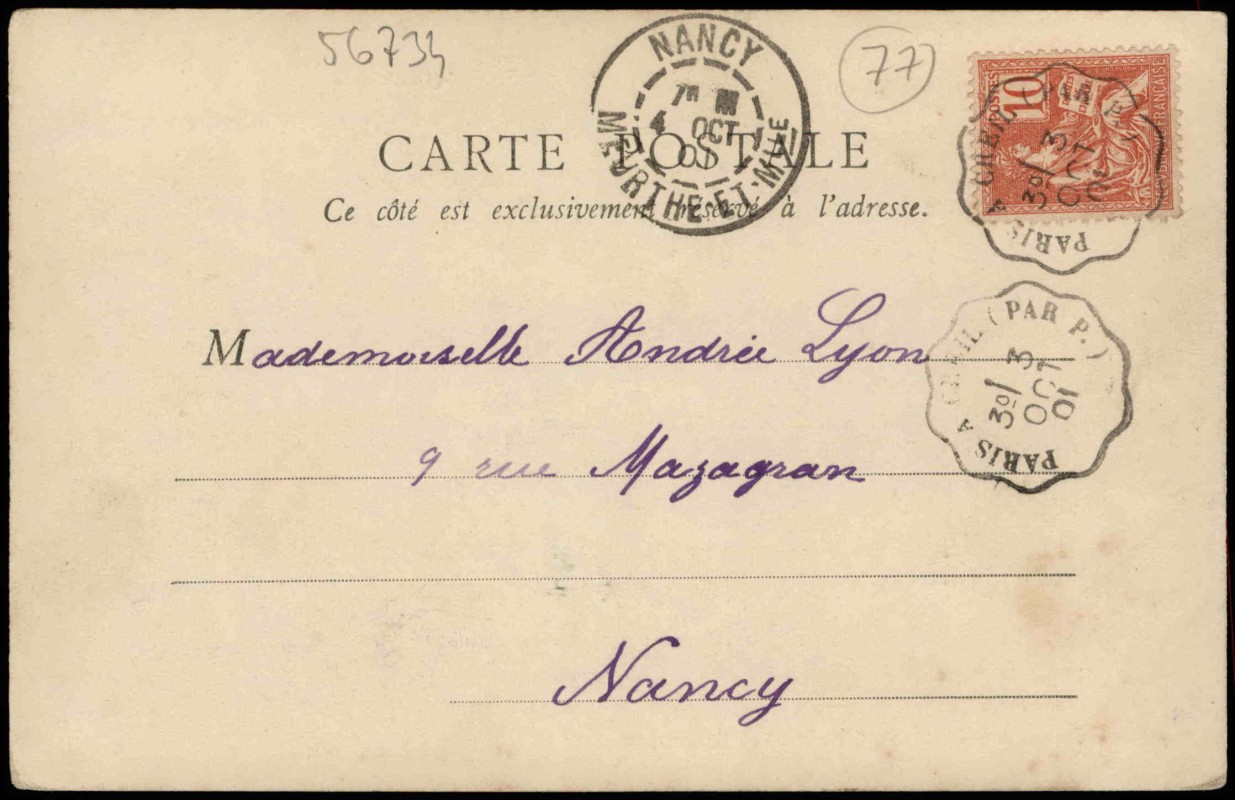 56734
77
NANCY
7H
4 OCT
01
MEURTHE-ET-MLLE
POSTES
10
FRANÇAISE
PARIS A CREIL (PAR P.)
3º/ 3
OCT
01
CARTE POSTALE
Ce côté est exclusivement réservé à l'adresse.
Mademoiselle Andrée Lyon
PARIS A CREIL (PAR P.)
3º/ 3
OCT
01
9 rue Mazagran
Nancy